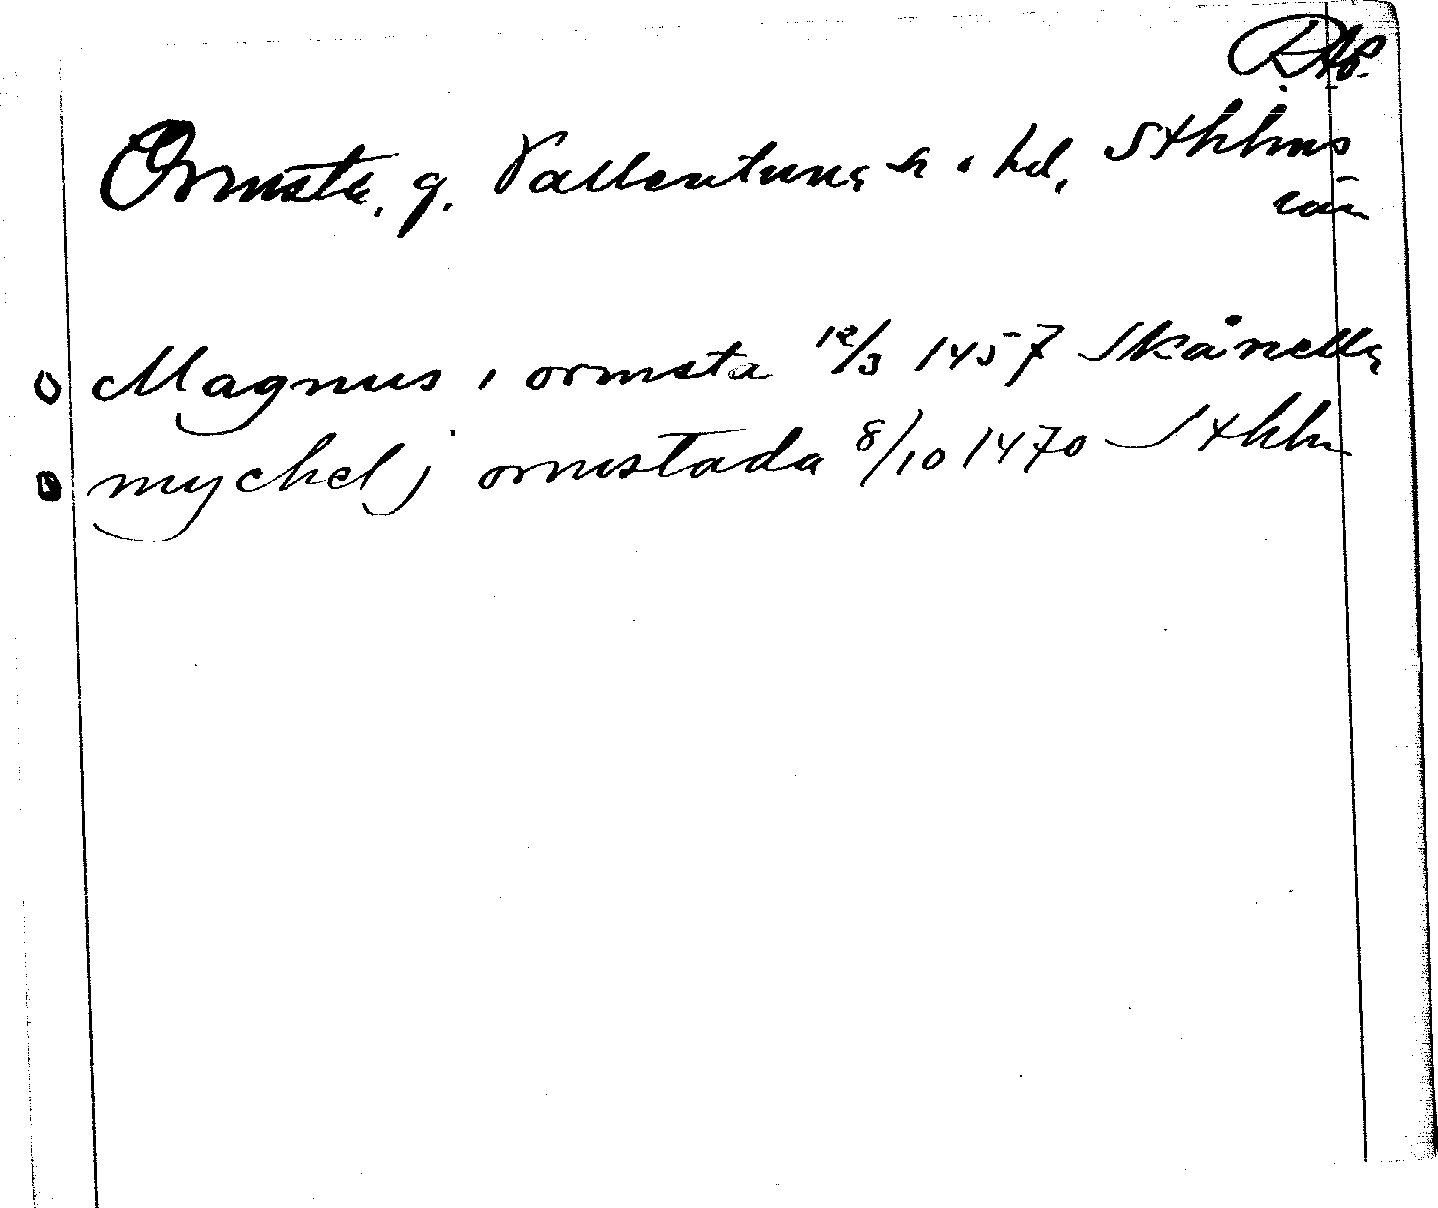 RAp.
Ormsta, g. Vallentuna sn o hd, Sthlms
län
Magnus i ormsta 12/3 1457 Skånella
mychel j ormstada 8/10 1470 Sthlm